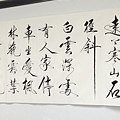 遠上寒山石
徑斜
白雲深處
有人家停
車坐愛楓
林晚霜葉